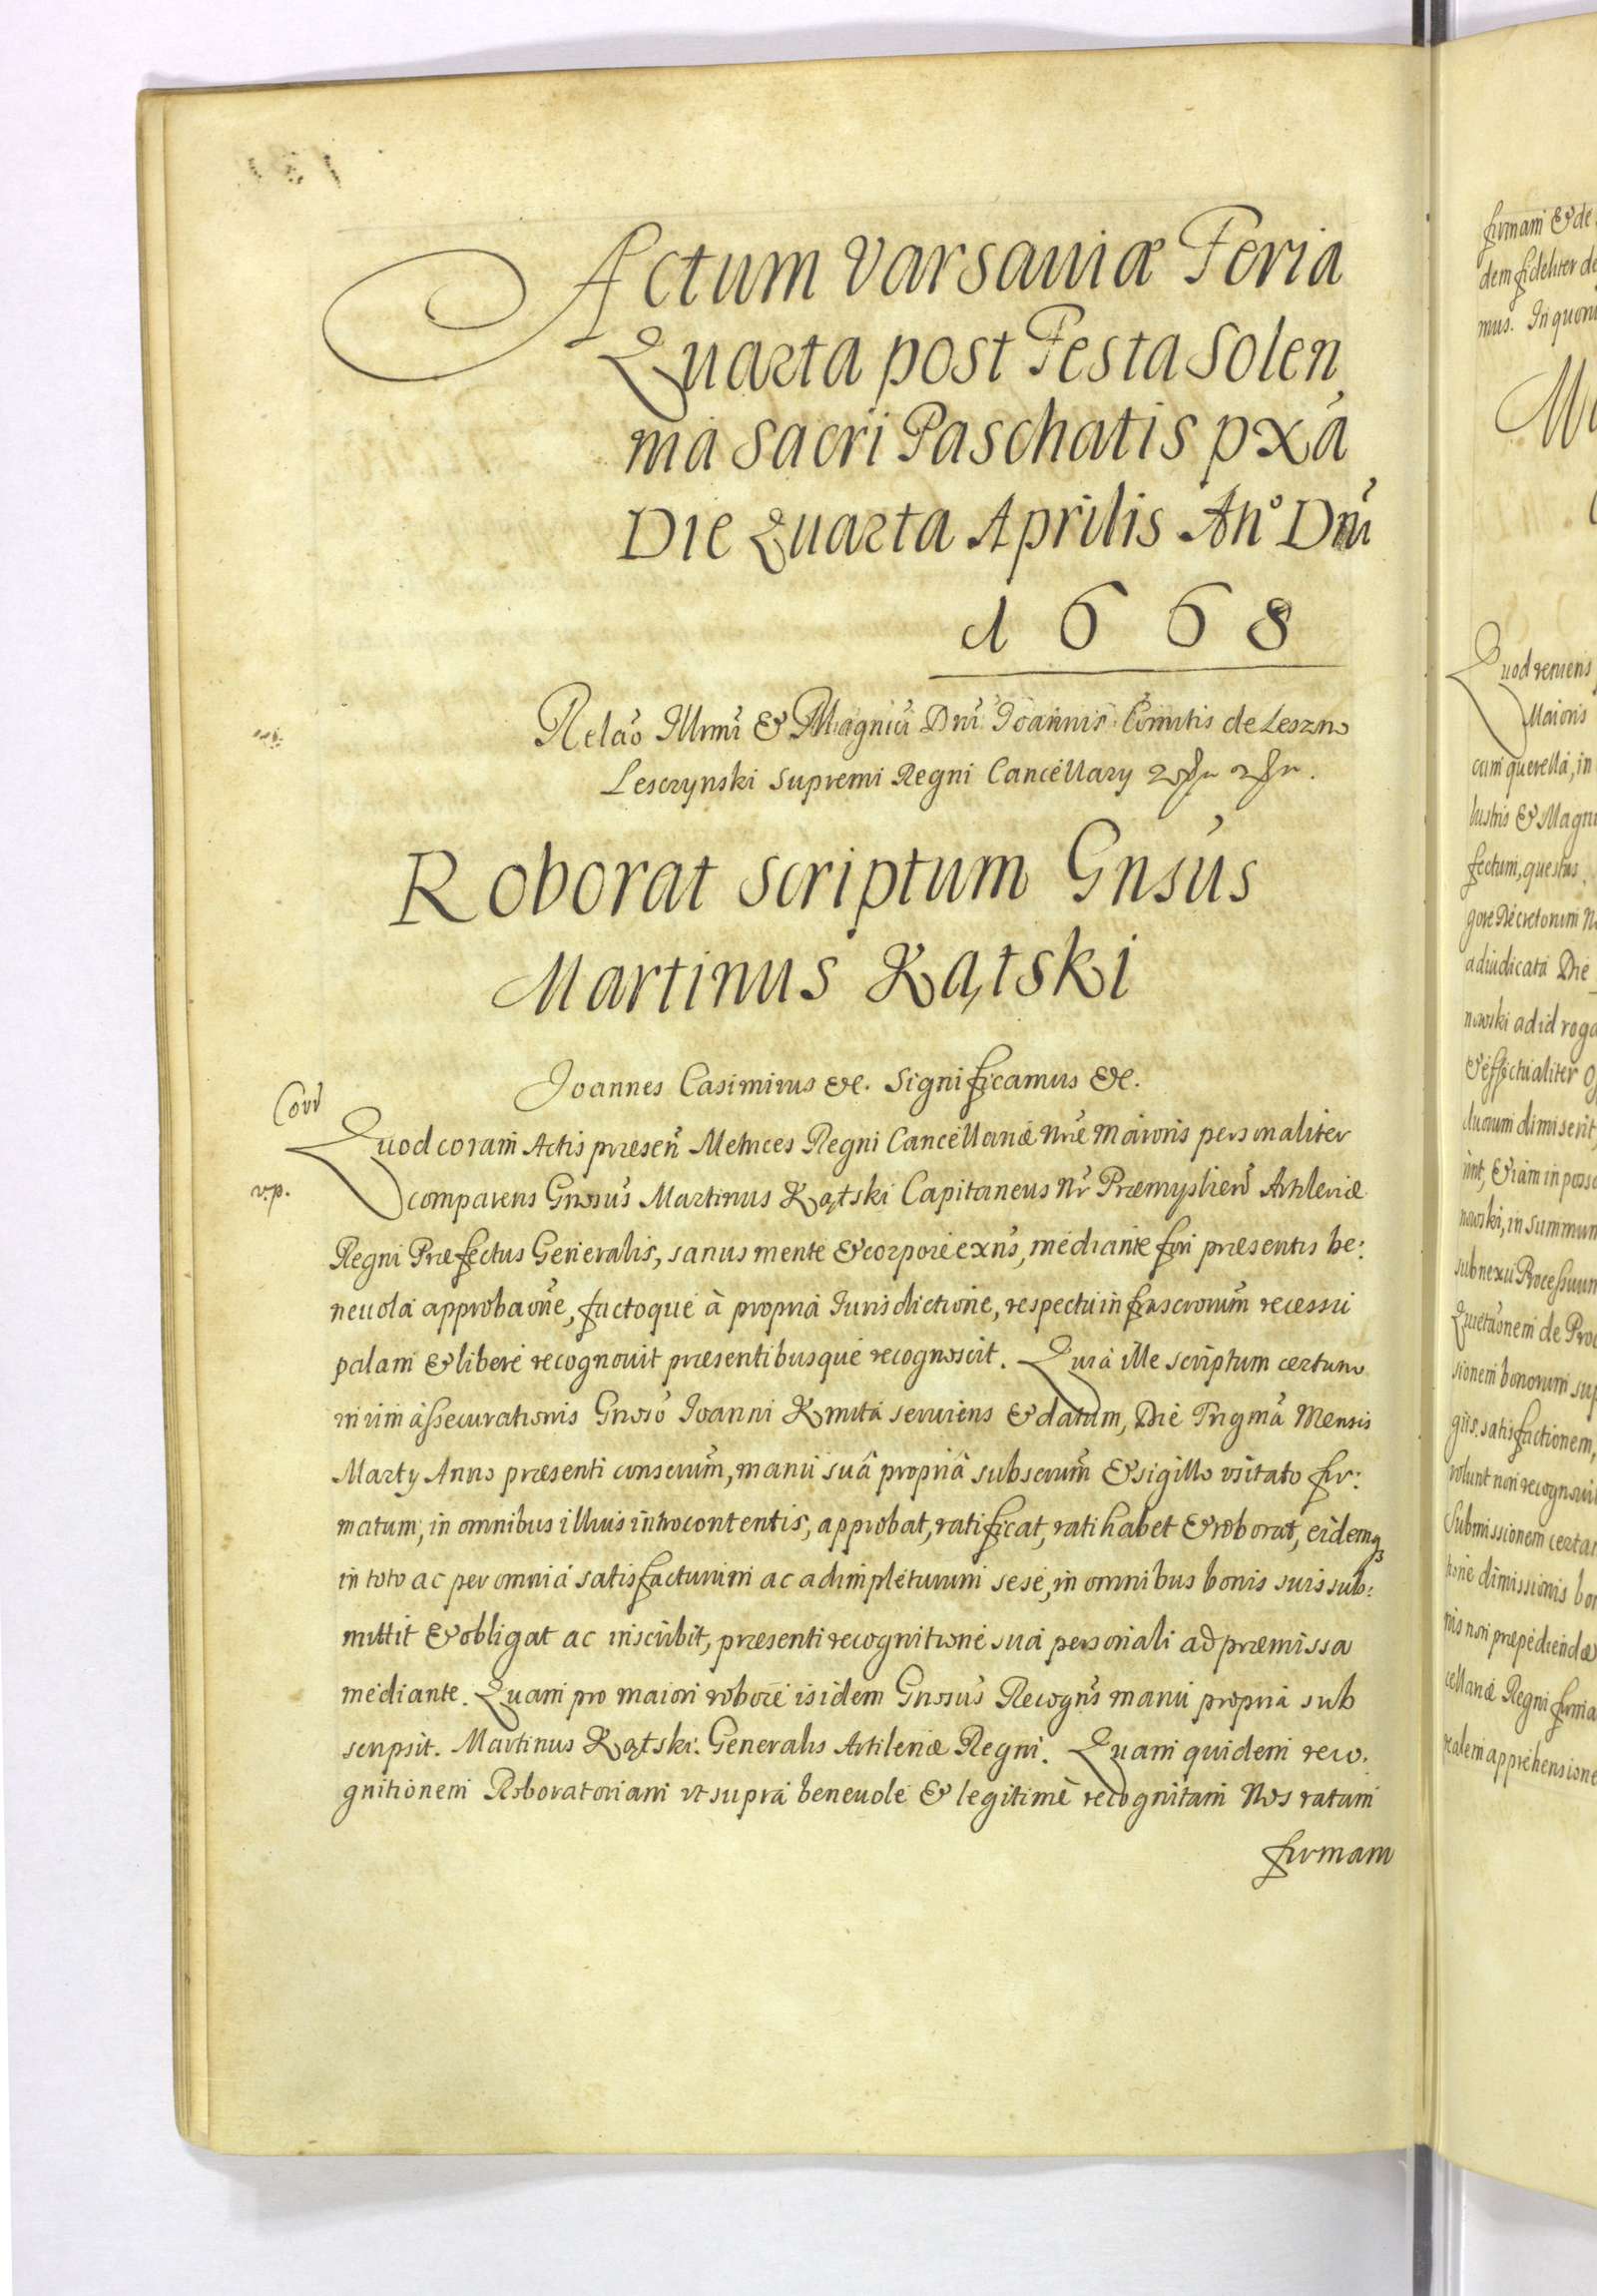 Actum Varsauiæ Feria
Quarta post Festa Solen
nia Sacri Paschatis pxá
Die Quarta Aprilis Anº Dni
1668
Relaō Illrmi & Magnici Dni Ioannis Comitis de Leszno
Lesczynski Supremi Regni Cancellary
Roborat Scriptum Gnsus
Martinus Kątski
Joannes Casimirus &c. Significamus &c.
Corr
Quod coram Actis præsen Metrices Regni Cancellariæ Nræ Maioris personaliter
v.p.
comparens Gnosus Martinus Kątski Capitaneus Nr Præmyslien Artileriæ
Regni Præfectus Generalis, sanus mente & corpore exns, mediante fori præsentis be:
neuola approbaone, factoque à propria Iurisdictione, respectu infrascrorum recessu
palam & libere recognouit præsentibusque recognoscit. Quia ille scriptum certum
in vim assecurationis Gnoso Ioanni Kmita seruiens & datum, Die Trigma Mensis
Marty Anno præsenti conscrum, manu suâ propriâ subscrum & sigillo vsitato fir:
matum, in omnibus illius introcontentis, approbat, ratificat, ratihabet & roborat, eidemq
in toto ac per omnia satisfacturum ac adimpleturum sese, in omnibus bonis suis sub:
mittit & obligat ac inscribit, præsenti recognitione sua personali ad præmissa
mediante. Quam pro maiori robore is idem Gnosus Recogns manu propria sub
scripsit. Martinus Kątski. Generalis Artileriæ Regni. Quam quidem reco.
gnitionem Roboratoriam vt supra beneuole & legitime recognitam Nos ratam
firmam
firmam & de
dem fideliter de
mus. In quoru
Quod veniens
Maioris
cum querella, in
lustris & Magni
fectum, questus
gore Decretorum
adiudicata Die
nowski ad id roga
& effectualiter
duarum dimiserit
int, & iam in posse
nowski, in summum
subnexu Processuum
Quietaonem de Pro
sionem bonorum sup
giis. satisfactionem,
volunt non recognoui
Submissionem certa
tione dimissionis bo
nis non præpediendæ
cellariæ Regni firma
realem apprehensione